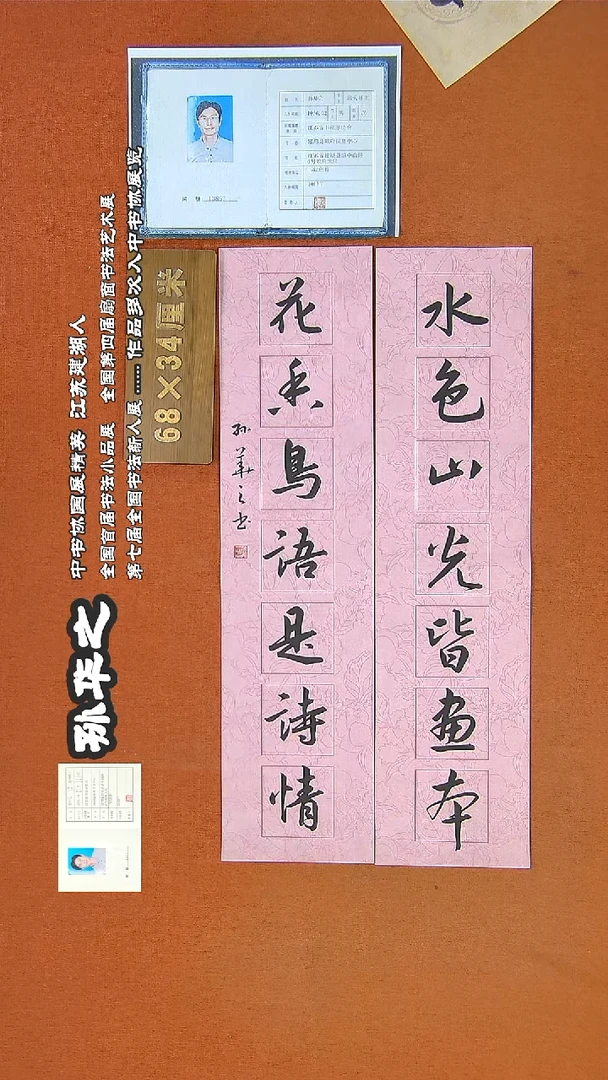 水色山光皆画本
花香鸟語是詩情
孙華之书
68×34厘米
孙华之
中书协国展精英 江苏建湖人
全国首届书法小品展 全国第四届扇面书法艺术展
第七届全国书法新人展……作品多次入中书协展览